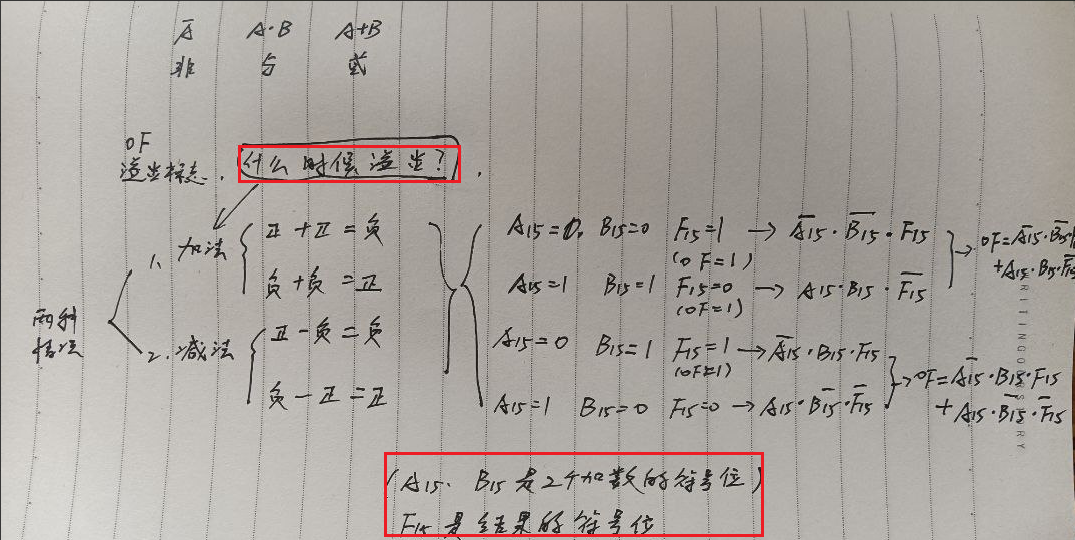 A̅ A·B A+B
非 与 或
OF
溢出标志. 什么时候溢出?
1、加法
正+正=负
负+负=正
两种情况
2、减法
正-负=负
负-正=正
A15=0. B15=0 F15=1 (OF=1) → A̅15·B̅15·F15
A15=1 B15=1 F15=0 (OF=1) → A15·B15·F̅15
OF=A̅15·B̅15
+A15·B15·F̅15
A15=0 B15=1 F15=1 (OF=1) → A̅15·B15·F15
A15=1 B15=0 F15=0 → A15·B̅15·F̅15
OF=A̅15·B15·F15
+A15·B̅15·F̅15
(A15、B15是2个加数的符号位)
F15是结果的符号位